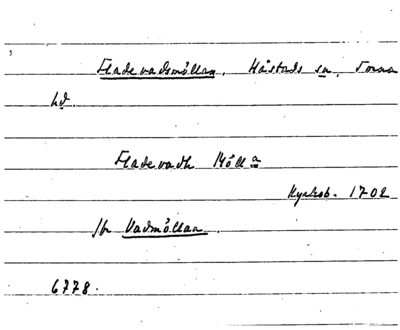 Fladevadsmöllan, Håstads sn, Torna
hd.
Fladevadh Mölla
Kyrkob. 1702
Jfr Vadmöllan.
6778.